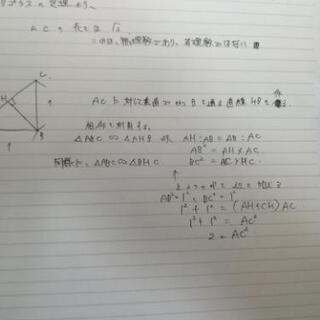 の定理より、
ACの長さは √2
これは、無理数であり、有理数ではない
C
H
1
B
1
ACに対し垂直でかつBを通る直線HBを
相似を利用する。
△ABC ∽ △AHB より AH:AB = AB:AC
AB² = AH×AC
同様に、△ABC ∽ △BHC BC² = AC×HC
↑
AB² = 1² BC² = 1²
1² + 1² = (AH+CH)AC
1² + 1² = AC²
2 = AC²